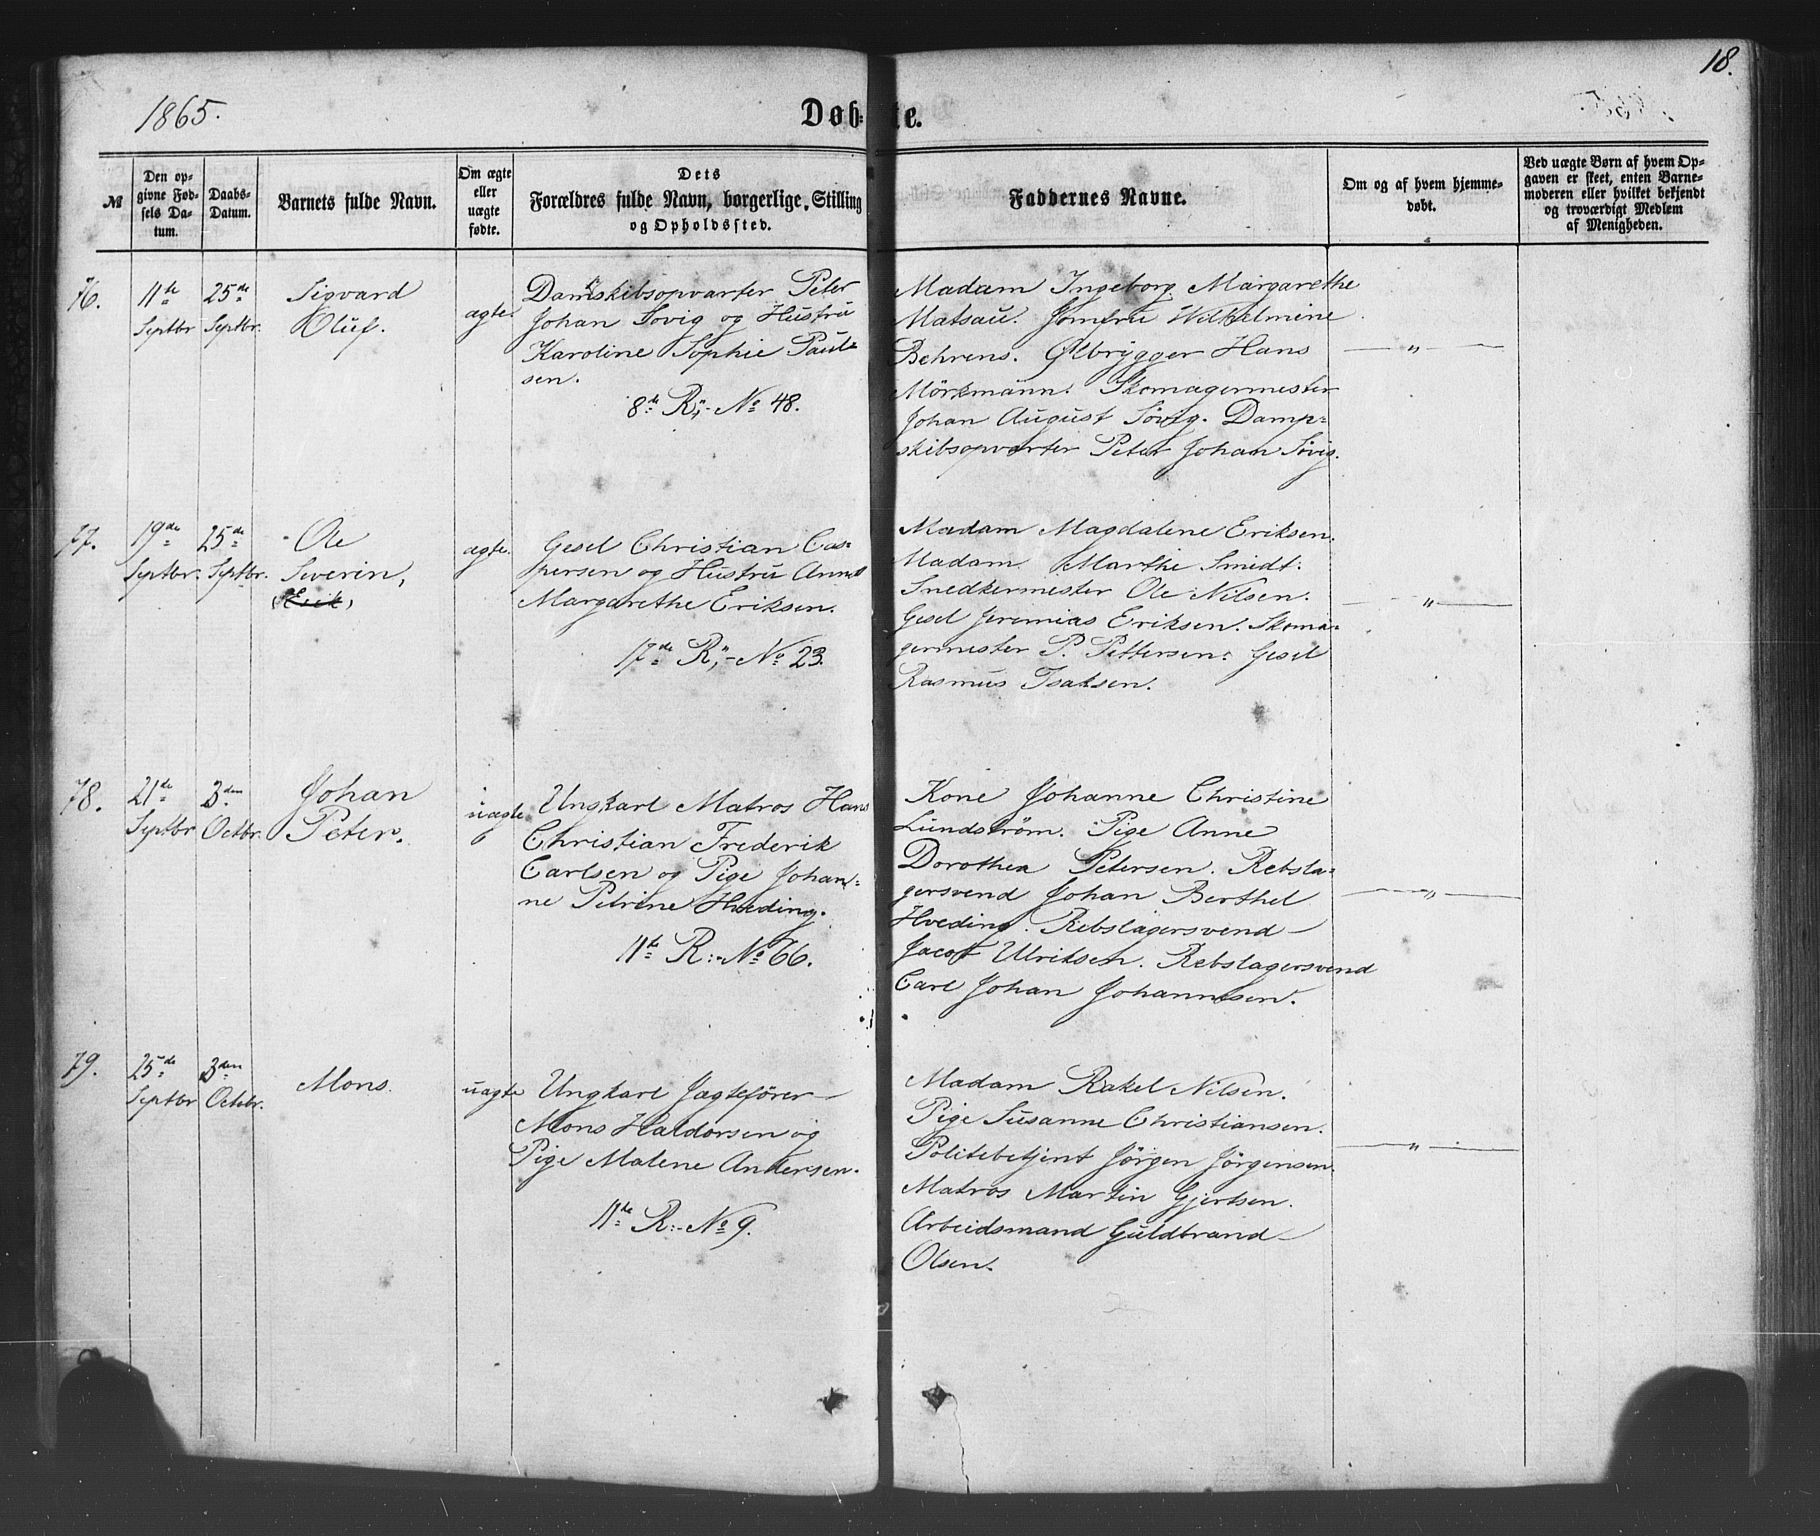 18.
1865.
Døb-te.
№
Den opgivne Fødsels Datum.
Daabs-Datum.
Barnets fulde Navn.
Om ægte eller uægte fødte.
Dets Forældres fulde Navn, borgerlige Stilling og Opholdssted.
Faddernes Navne.
Om og af hvem hjemmedøbt.
Ved uægte Børn af hvem Opgaven er skeet, enten Barnemoderen eller hvilket bekjendt og troværdigt Medlem af Menigheden.
76.
11te Septbr
25de Septbr.
Sigvard
Oluf.
ægte.
Damskibsopvarter Peter
Johan Søvig og Hustru
Karoline Sophie Paul-
sen.
8de R;- No 48.
Madam Ingeborg Margarethe
Matsau. Jomfru Wilhelmine
Behrens. Ølbrygger Hans
Mörkmann. Skomagermester
Johan August Søvig. Damp-
skibsopvarter Peter Johan Søvig.
— " —
77.
19de Septbr.
25de Septbr.
Ole
Severin,
(Erik)
ægte.
Gesel Christian Cas-
persen og Hustru Anne
Margarethe Eriksen.
17de R;- No 23.
Madam Magdalene Eriksen.
Madam Marthe Smidt.
Snedkermester Ole Nilsen.
Gesel Jeremias Eriksen. Skoma-
germester P. Pettersen. Gesel
Rasmus Isaksen.
— " —
78.
21de Septbr
3den Octbr.
Johan
Peter.
uægte
Ungkarl Matros Hans
Christian Frederik
Carlsen og Pige Johan-
ne Petrine Hveding.
11te R:- No 66.
Kone Johanne Christine
Lundström. Pige Anne
Dorothea Petersen. Rebsla-
gersvend Johan Berthel
Hveding. Rebslagersvend —
Jacob Ulriksen. Rebslagersvend
Carl Johan Johannesen.
— " —
79.
25de Septbr
3den Octbr.
Mons.
uægte
Ungkarl Jagtefører —
Mons Haldorsen og
Pige Malene Andersen.
11te R:- No 9.
Madam Rakel Nilsen.
Pige Susanne Christiansen.
Politebetjent Jörgen Jörgensen.
Matros Martin Gjertsen.
Arbeidsmand Guldbrand —
Olsen.
— " —